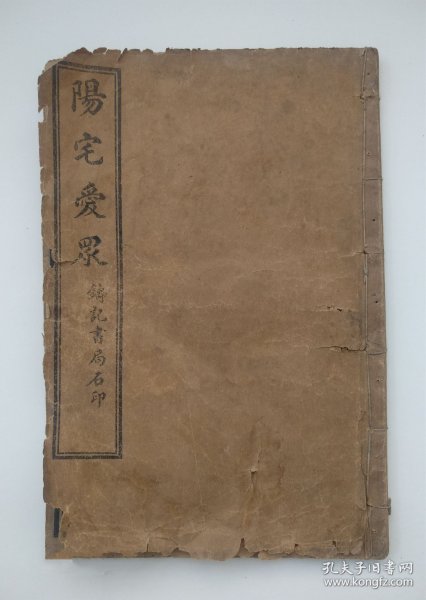 陽宅愛眾
鑄記書局石印
孔夫子旧书网
www.kongfz.com